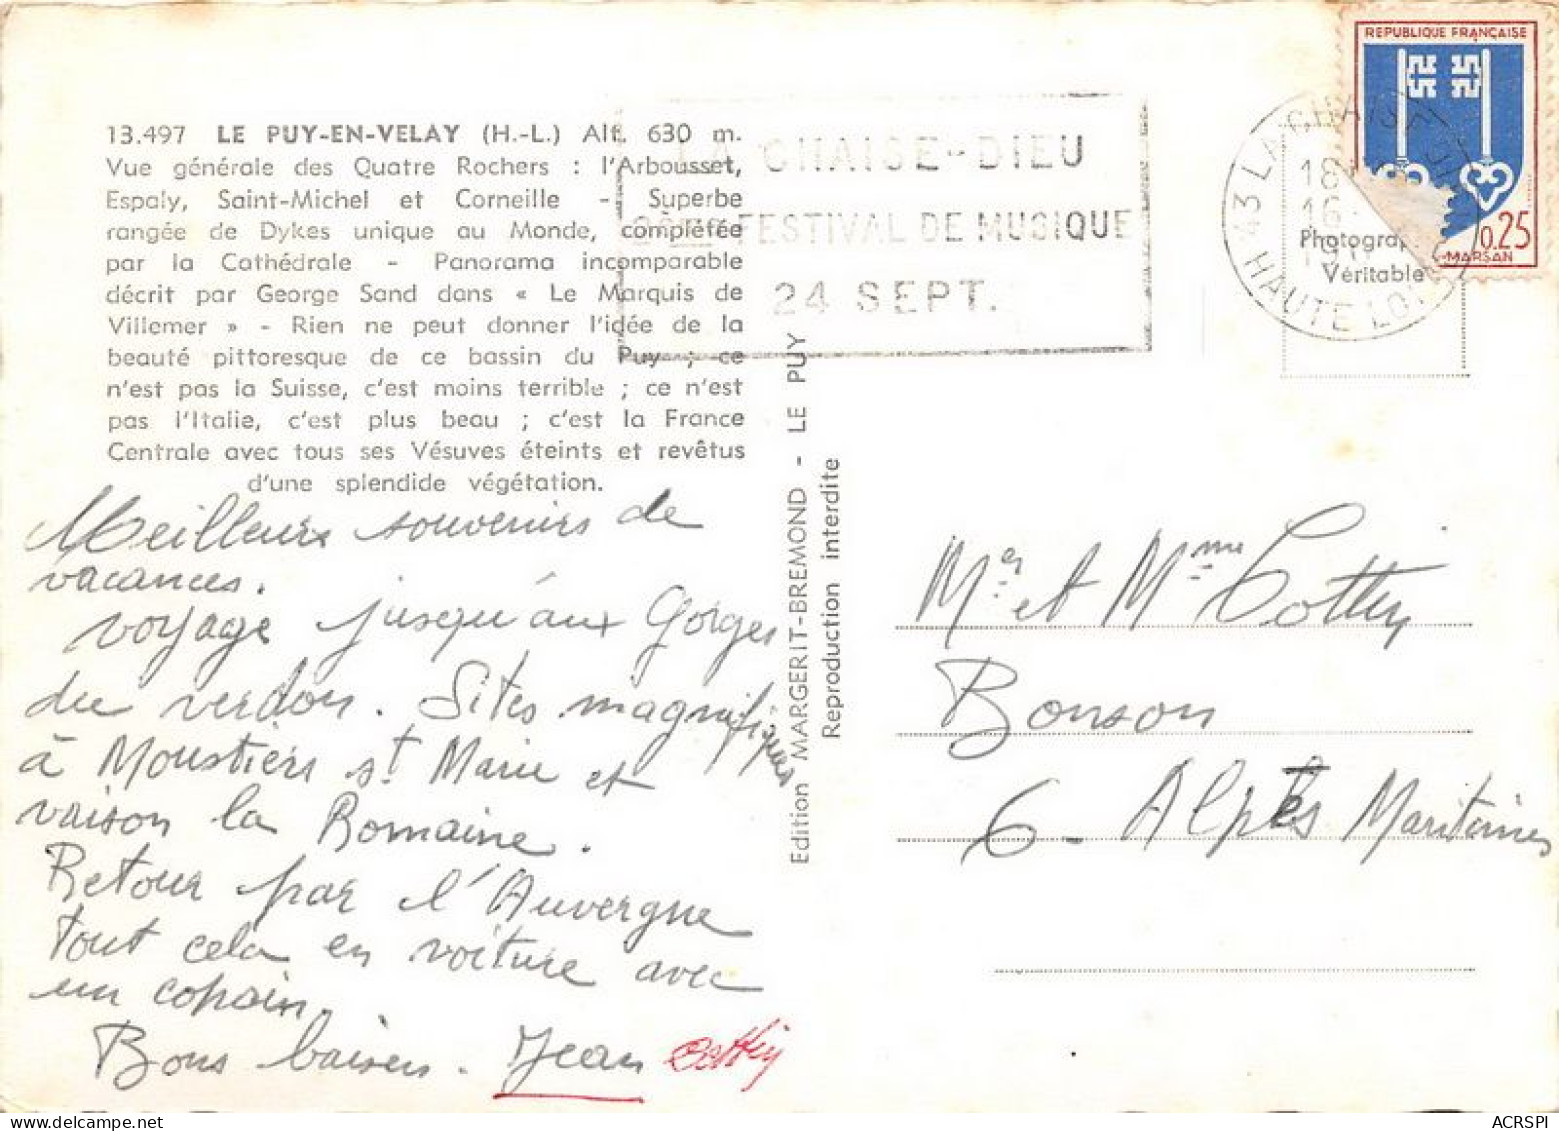 13.497 LE PUY-EN-VELAY (H.-L.) Alt. 630 m.
Vue générale des Quatre Rochers : l'Arbousset,
Espaly, Saint-Michel et Corneille - Superbe
rangée de Dykes unique au Monde, complétée
par la Cathédrale - Panorama incomparable
décrit par George Sand dans « Le Marquis de
Villemer » - Rien ne peut donner l'idée de la
beauté pittoresque de ce bassin du Puy ; ce
n'est pas la Suisse, c'est moins terrible ; ce n'est
pas l'Italie, c'est plus beau ; c'est la France
Centrale avec tous ses Vésuves éteints et revêtus
d'une splendide végétation.
Meilleurs souvenirs de
vacances.
voyage jusqu'aux Gorges
du verdon. Sites magnifiques
à Moustiers st Marie et
vaison la Romaine.
Retour par l'Auvergne
tout cela en voiture avec
un copain.
Bons baisers. Jean
LA CHAISE-DIEU
FESTIVAL DE MUSIQUE
24 SEPT.
Edition MARGERIT-BREMOND - LE PUY
Reproduction interdite
REPUBLIQUE FRANÇAISE
0.25
-MARSAN
43 LA CHAISE DIEU
18
16
HAUTE LOIRE
Photograph
Véritable
Mr et Mme
Bonson
6 - Alpes Maritimes
ACRSPI